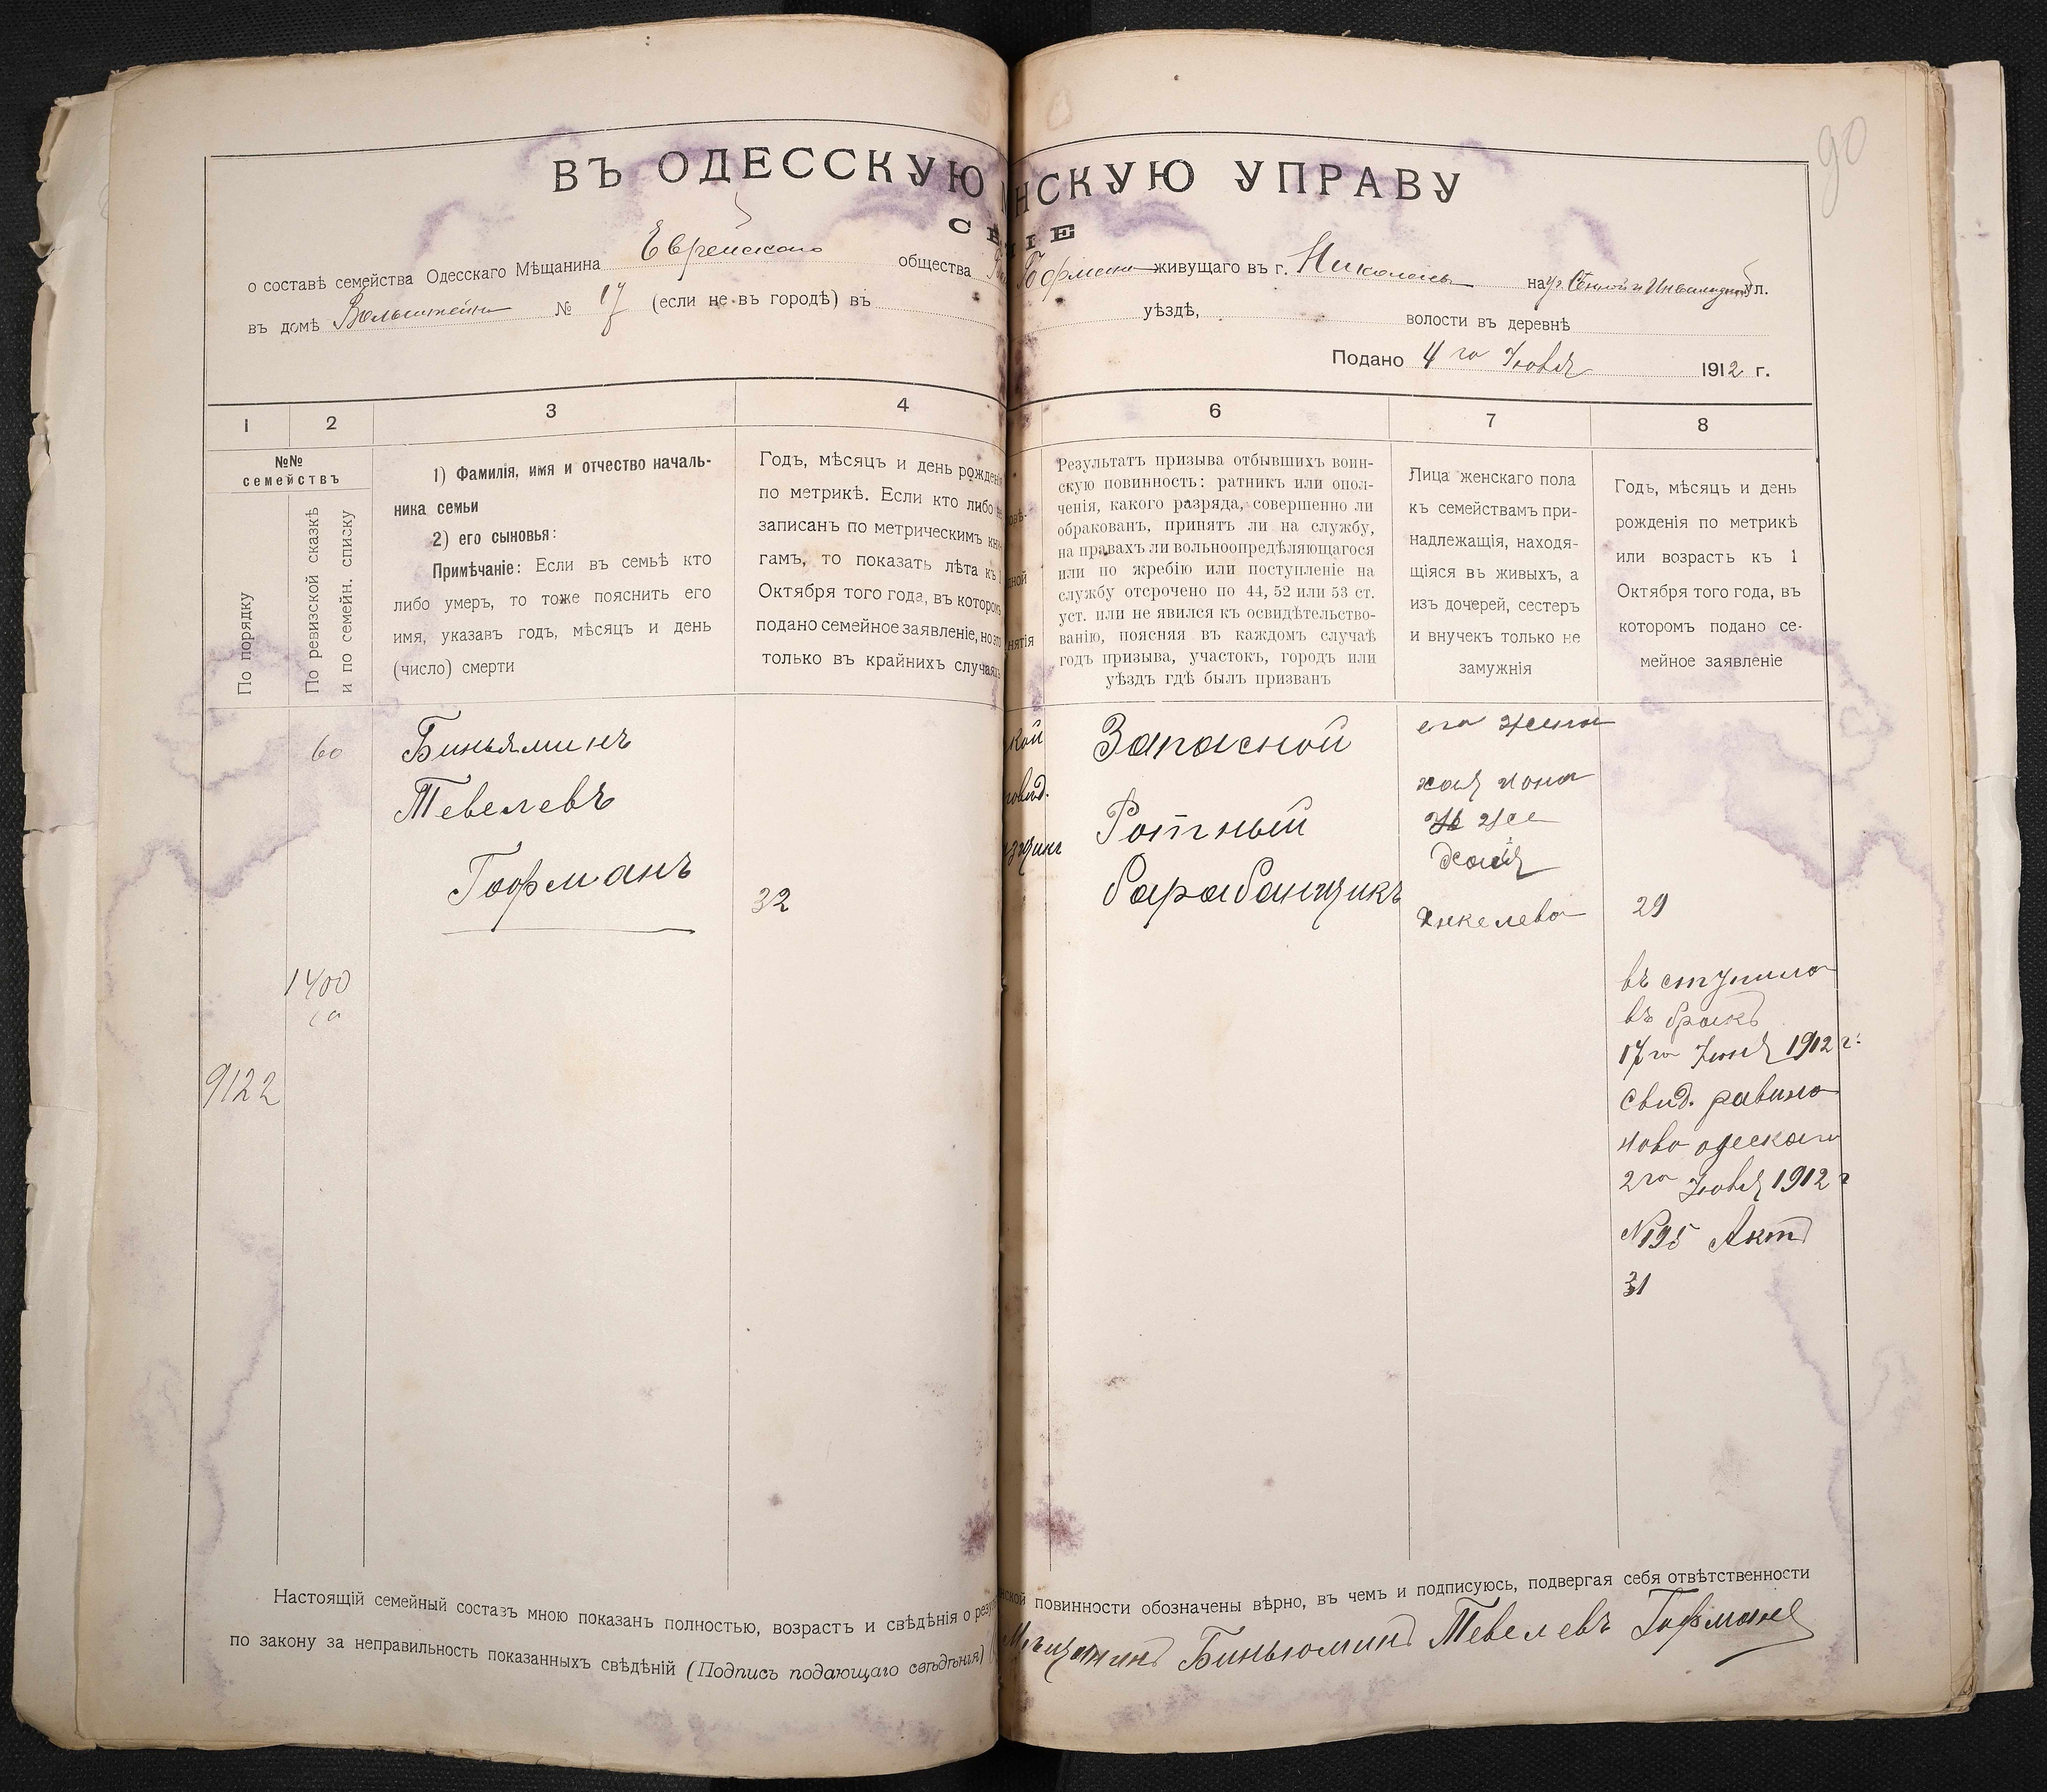 90
ВЪ ОДЕССКУЮ НСКУЮ УПРАВУ
о составѣ семейства Одесскаго Мѣщанина Еврейскаго общества Гофмана живущаго въ г. Николаевъ на уг. Сѣнной и Инвалидной ул.
въ домѣ Вольштейна № 17 (если не въ городѣ) въ уѣздѣ, волости въ деревнѣ
Подано 4 го Июля 1912 г.
1 2 3 4 6 7 8
№№
семействъ
По порядку
По ревизской сказкѣ
и по семейн. списку
1) Фамилія, имя и отчество началь-
ника семьи
2) его сыновья:
Примѣчаніе: Если въ семьѣ кто
либо умеръ, то тоже пояснить его
имя, указавъ годъ, мѣсяцъ и день
(число) смерти
Годъ, мѣсяцъ и день рожденія
по метрикѣ. Если кто либо не
записанъ по метрическимъ кни-
гамъ, то показать лѣта къ 1
Октября того года, въ которомъ
подано семейное заявленіе, но это
только въ крайнихъ случаяхъ
Результатъ призыва отбывшихъ воин-
скую повинность: ратникъ или опол-
ченія, какого разряда, совершенно ли
обракованъ, принятъ ли на службу,
на правахъ ли вольноопредѣляющагося
или по жребію или поступленіе на
службу отсрочено по 44, 52 или 53 ст.
уст. или не явился къ освидѣтельство-
ванію, поясняя въ каждомъ случаѣ
годъ призыва, участокъ, городъ или
уѣздъ гдѣ былъ призванъ
Лица женскаго пола
къ семействамъ при-
надлежащія, находя-
щіяся въ живыхъ, а
изъ дочерей, сестеръ
и внучекъ только не
замужнія
Годъ, мѣсяцъ и день
рожденія по метрикѣ
или возрасть къ 1
Октября того года, въ
которомъ подано се-
мейное заявленіе
60
1400
9122
Биньяминъ
Тевелевъ
Гофманъ
32
Запасной
Ротный
барабанщикъ
его жена
хая хона
же
Хаія
Янкелева
29
въ ступила
въ бракъ
17 го Июня 1912 г.
Свид. равина
ново одескаго
2 го Июля 1912 г
№195 Актъ
31
Настоящій семейный составъ мною показанъ полностью, возрастъ и свѣдѣнія о резул нской повинности обозначены вѣрно, въ чемъ и подписуюсь, подвергая себя отвѣтственности
по закону за неправильность показанныхъ свѣдѣній (Подпись подающаго свѣдѣнія) Мѣщанинъ Биньюминъ Тевелевъ Гофманъ